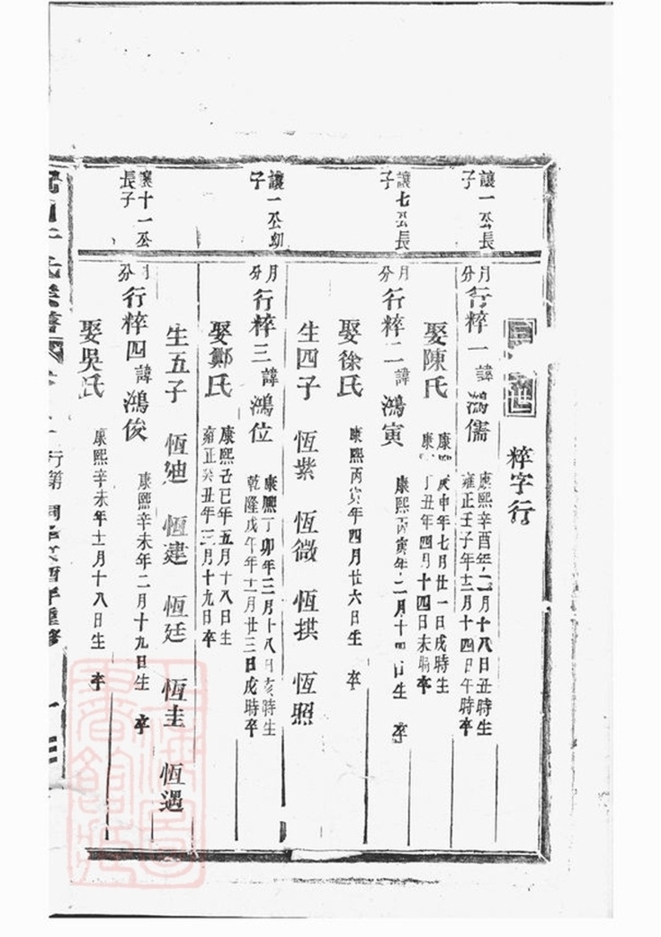 粹字行
讓一公長子
月分
行粹一
諱
鴻儒
康熙辛酉年二月十八日丑時生
雍正壬子年十二月十四日午時卒
娶陳氏
康熙庚申年七月廿一日戌時生
康熙丁丑年四月十四日未時卒
讓七公長子
月分
行粹二
諱
鴻寅
康熙丙寅年二月十四日生 卒
娶徐氏
康熙丙寅年四月廿六日生 卒
生四子 恆紫 恆微 恆拱 恆照
讓一公幼子
月分
行粹三
諱
鴻位
康熙丁卯年三月十八日亥時生
乾隆戊午年十二月廿三日戌時卒
娶鄭氏
康熙己巳年五月十八日生
雍正癸丑年三月十九日卒
生五子 恆廸 恆建 恆廷 恆圭 恆遇
讓十一公長子
月分
行粹四
諱
鴻俊
康熙辛未年二月十九日生 卒
娶吳氏
康熙辛未年十二月十八日生 卒
行第
年重修